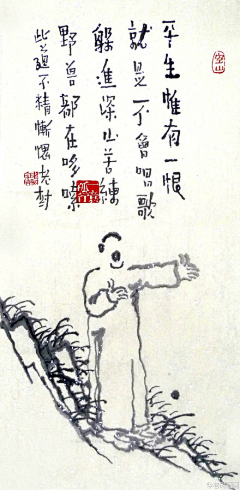 平生惟有一恨
就是不會唱歌
躲進深山苦練
野兽都在哆嗦
此道不精慚愧老树